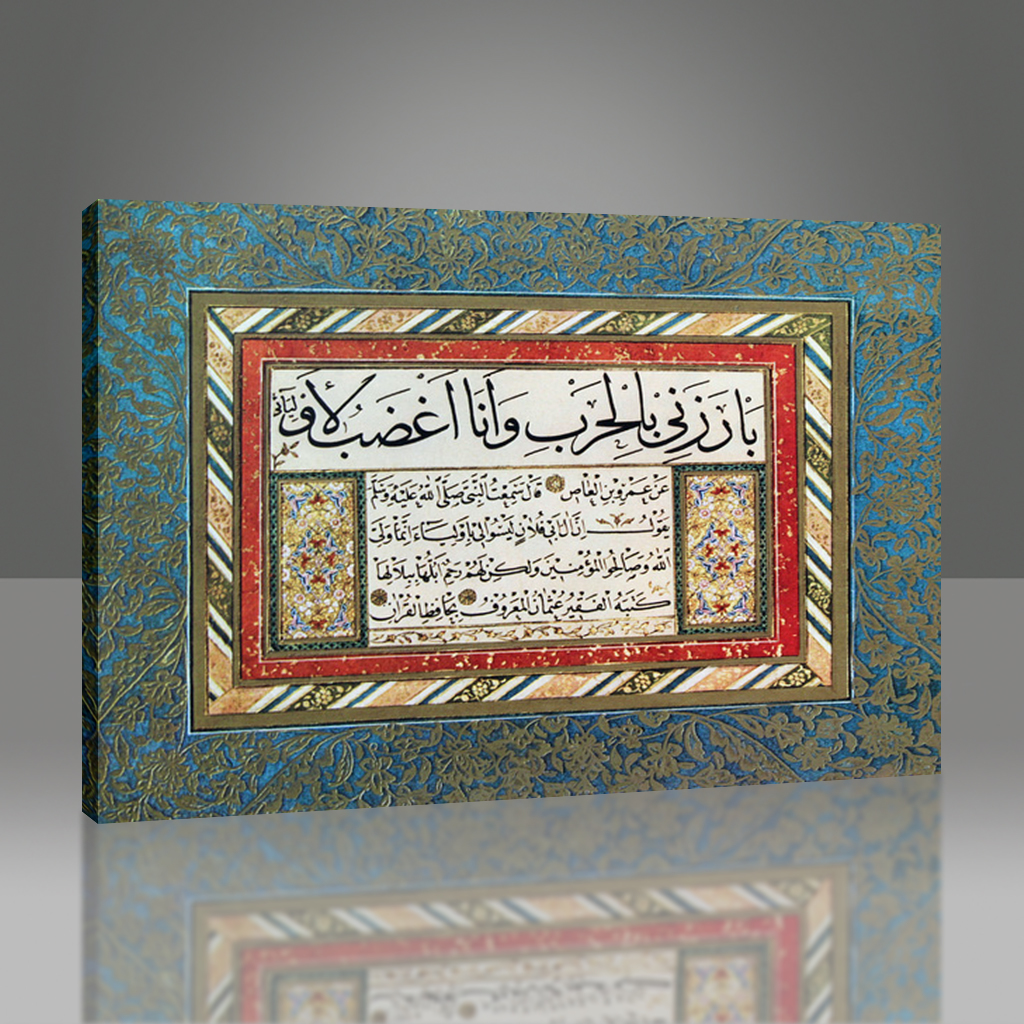 بَارَزَنِي بِالْحَرْبِ وَأَنَا أَغْضَبُ لِأَوْلِيَائِي
عَنْ عَمْرِو بْنِ الْعَاصِ قَالَ سَمِعْتُ النَّبِيَّ صَلَّى اللهُ عَلَيْهِ وَسَلَّمَ
يَقُولُ إِنَّ آلَ أَبِي فُلَانٍ لَيْسُوا لِي بِأَوْلِيَاءَ إِنَّمَا وَلِيِّيَ
اللهُ وَصَالِحُو الْمُؤْمِنِينَ وَلَكِنْ لَهُمْ رَحِمٌ أَبُلُّهَا بِبِلَالِهَا
كَتَبَهُ الْفَقِيرُ عُثْمَانُ الْمَعْرُوفُ بِحَافِظِ الْقُرْآنِ